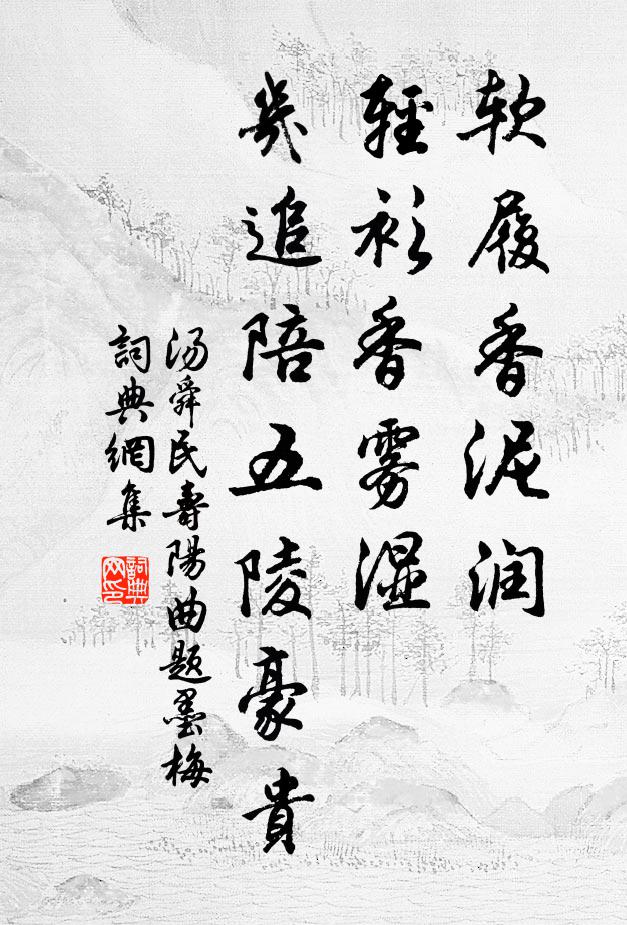 软履香泥润
輕衫香雾湿
幾追陪五陵豪貴
汤舜民壽陽曲题墨梅
詞典網集
詞典
网印